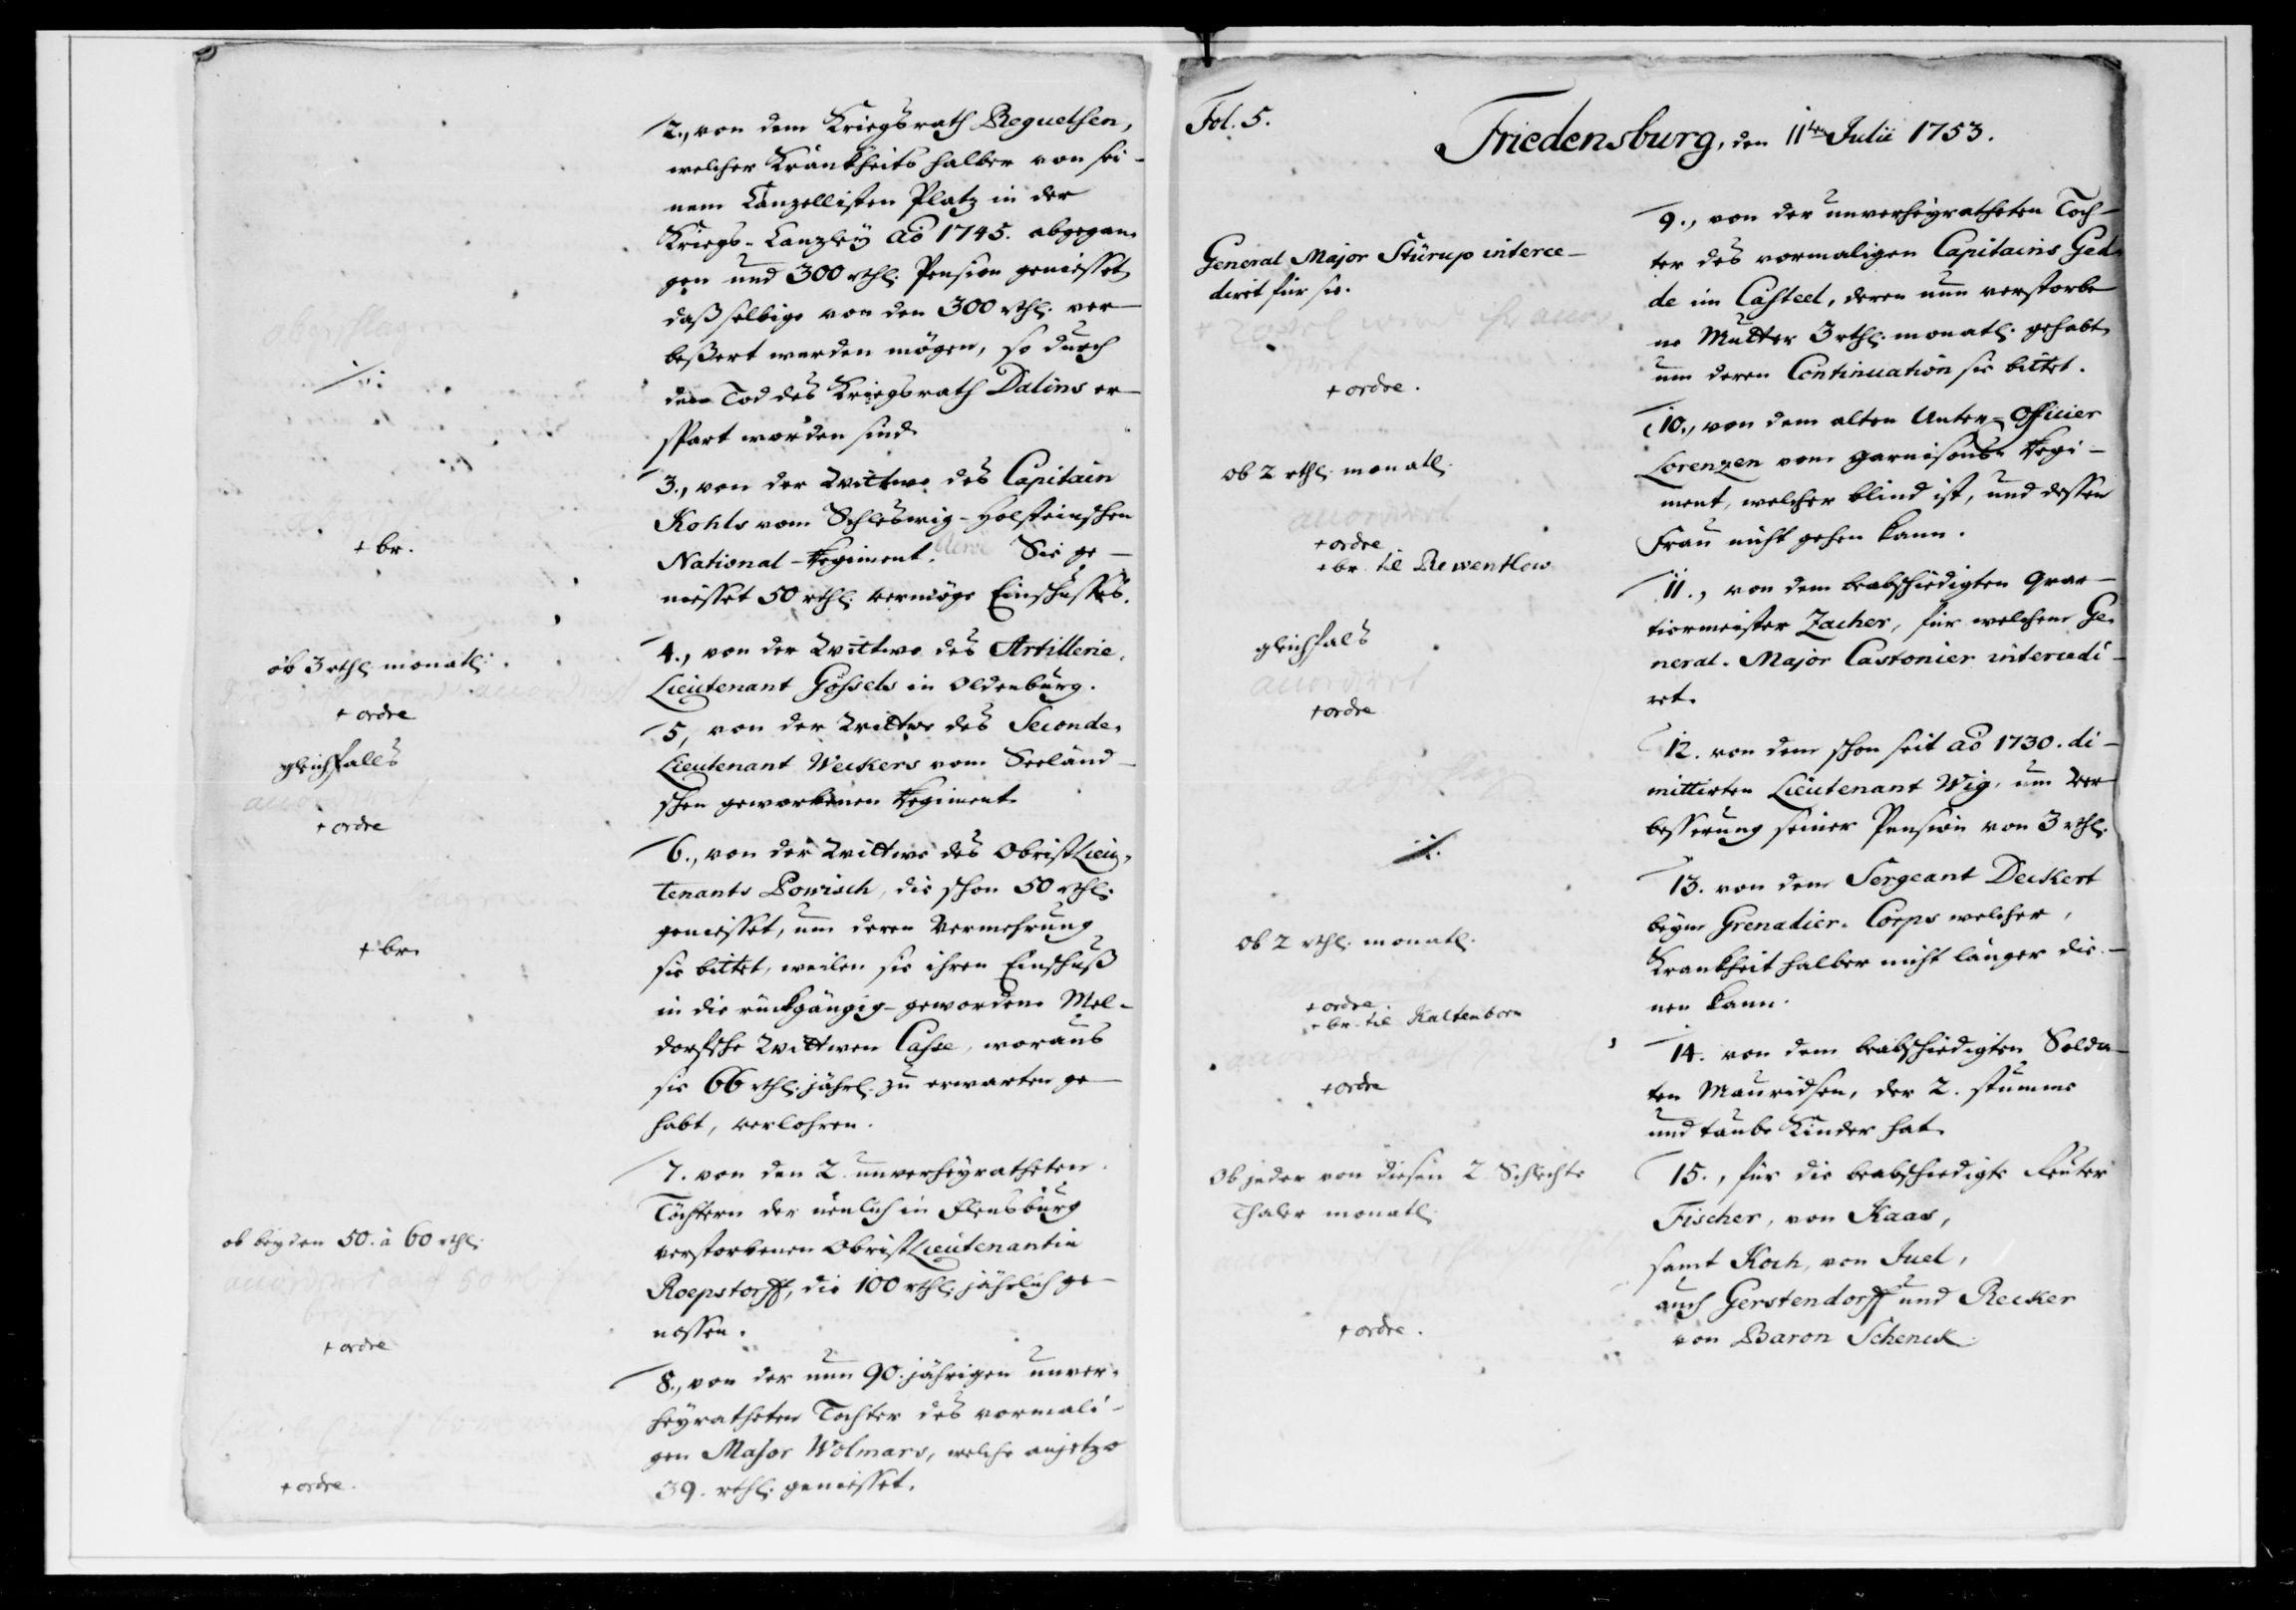 2., von dem Kriegsrath Reguelsen,
welcher Kränkheits halber von sei-
nem Canzellisten Platz in der
Kriegs-Canzley aõ 1745. abgegan-
gen und 300 rthl. Pension geniesset,
daß selbige von den 300 rthl. ver-
beßert werden mögen, so durch
den Tod des Kriegsrath Dalins er-
spart worden sind.
abgeschlagen
./.
3., von der Wittwe des Capitain
Kohls vom Schleswig-Holsteinschen
National-Regiment. Sie ge-
niesset 50 rthl. vermöge Einschusses.
+ br.
4., von der Wittwe des Artillerie-
Lieutenant Gössels in Oldenburg.
ob 3 rthl. monatl.
+ ordre
5, von der Wittwe des Seconde-
Lieutenant Weckers vom Seeländ-
schen geworbenen Regiment.
gleichfalls
accordiret
+ ordre
6., von der Wittwe des ObristLieu-
tenants Powisch, die schon 50 rthl.
geniesset, um deren Vermehrung
sie bittet, weilen sie ihren Einschuß
in die rückgängig-gewordene Mel-
dorfsche Wittwen Casse, woraus
sie 66 rthl. jährl. zu erwarten ge-
habt, verlohren.
+ br.
7. von den 2 unverheyratheten
Töchtern der neulich in Flensburg
verstorbenen ObristLieutenantin
Roepstorff, die 100 rthl. jährlich ge-
nossen.
ob beyden 50. à 60 rthl.
+ ordre
8., von der nun 90. jährigen unver-
heyratheten Tochter des vormali-
gen Major Wolmars, welche anjetzo
39. rthl. geniesset.
+ ordre.
Fol. 5.
Friedensburg, den 11ten Julii 1753.
9., von der unverheyratheten Toch-
ter des vormaligen Capitains Ged-
de im Casteel, deren nun verstorbe-
ne Mutter 3 rthl. monatl. gehabt,
um deren Continuation sie bittet.
General Major Stürup interce-
diret für sie.
+ ordre.
10., von dem alten Unter-Officier
Lorenzen vom Garnisons-Regi-
ment, welcher blind ist, und dessen
Frau nicht gehen kann.
ob 2 rthl. monatl.
accordiret
+ ordre
+ br. til Rewentlow
11., von dem beabschiedigten Quar-
tiermeister Zacher, für welchem Ge-
neral-Major Castonier intercedi-
ret.
gleichfals
accordiret
+ ordre
12. von dem schon seit aõ 1730. di-
mittirten Lieutenant Wig, um Ver-
besserung seiner Pension von 3 rthl.
./.
13. von dem Sergeant Deckert
beym Grenadier-Corps welcher,
Krankheit halber nicht länger die-
nen kann.
ob 2 rthl. monatl.
+ ordre.
+ br. til Kaltenborn
14. von dem beabschiedigten Solda-
ten Mauridsen, der 2. stumme
und taube Kinder hat.
+ ordre
15., für die beabschiedigte Reuter
Fischer, von Kaas,
samt Koch, von Juel,
auch Gerstendorff und Recker
von Baron Schenck
Ob jeder von diesen 2 Schlechte
Thaler monatl.
+ ordre.